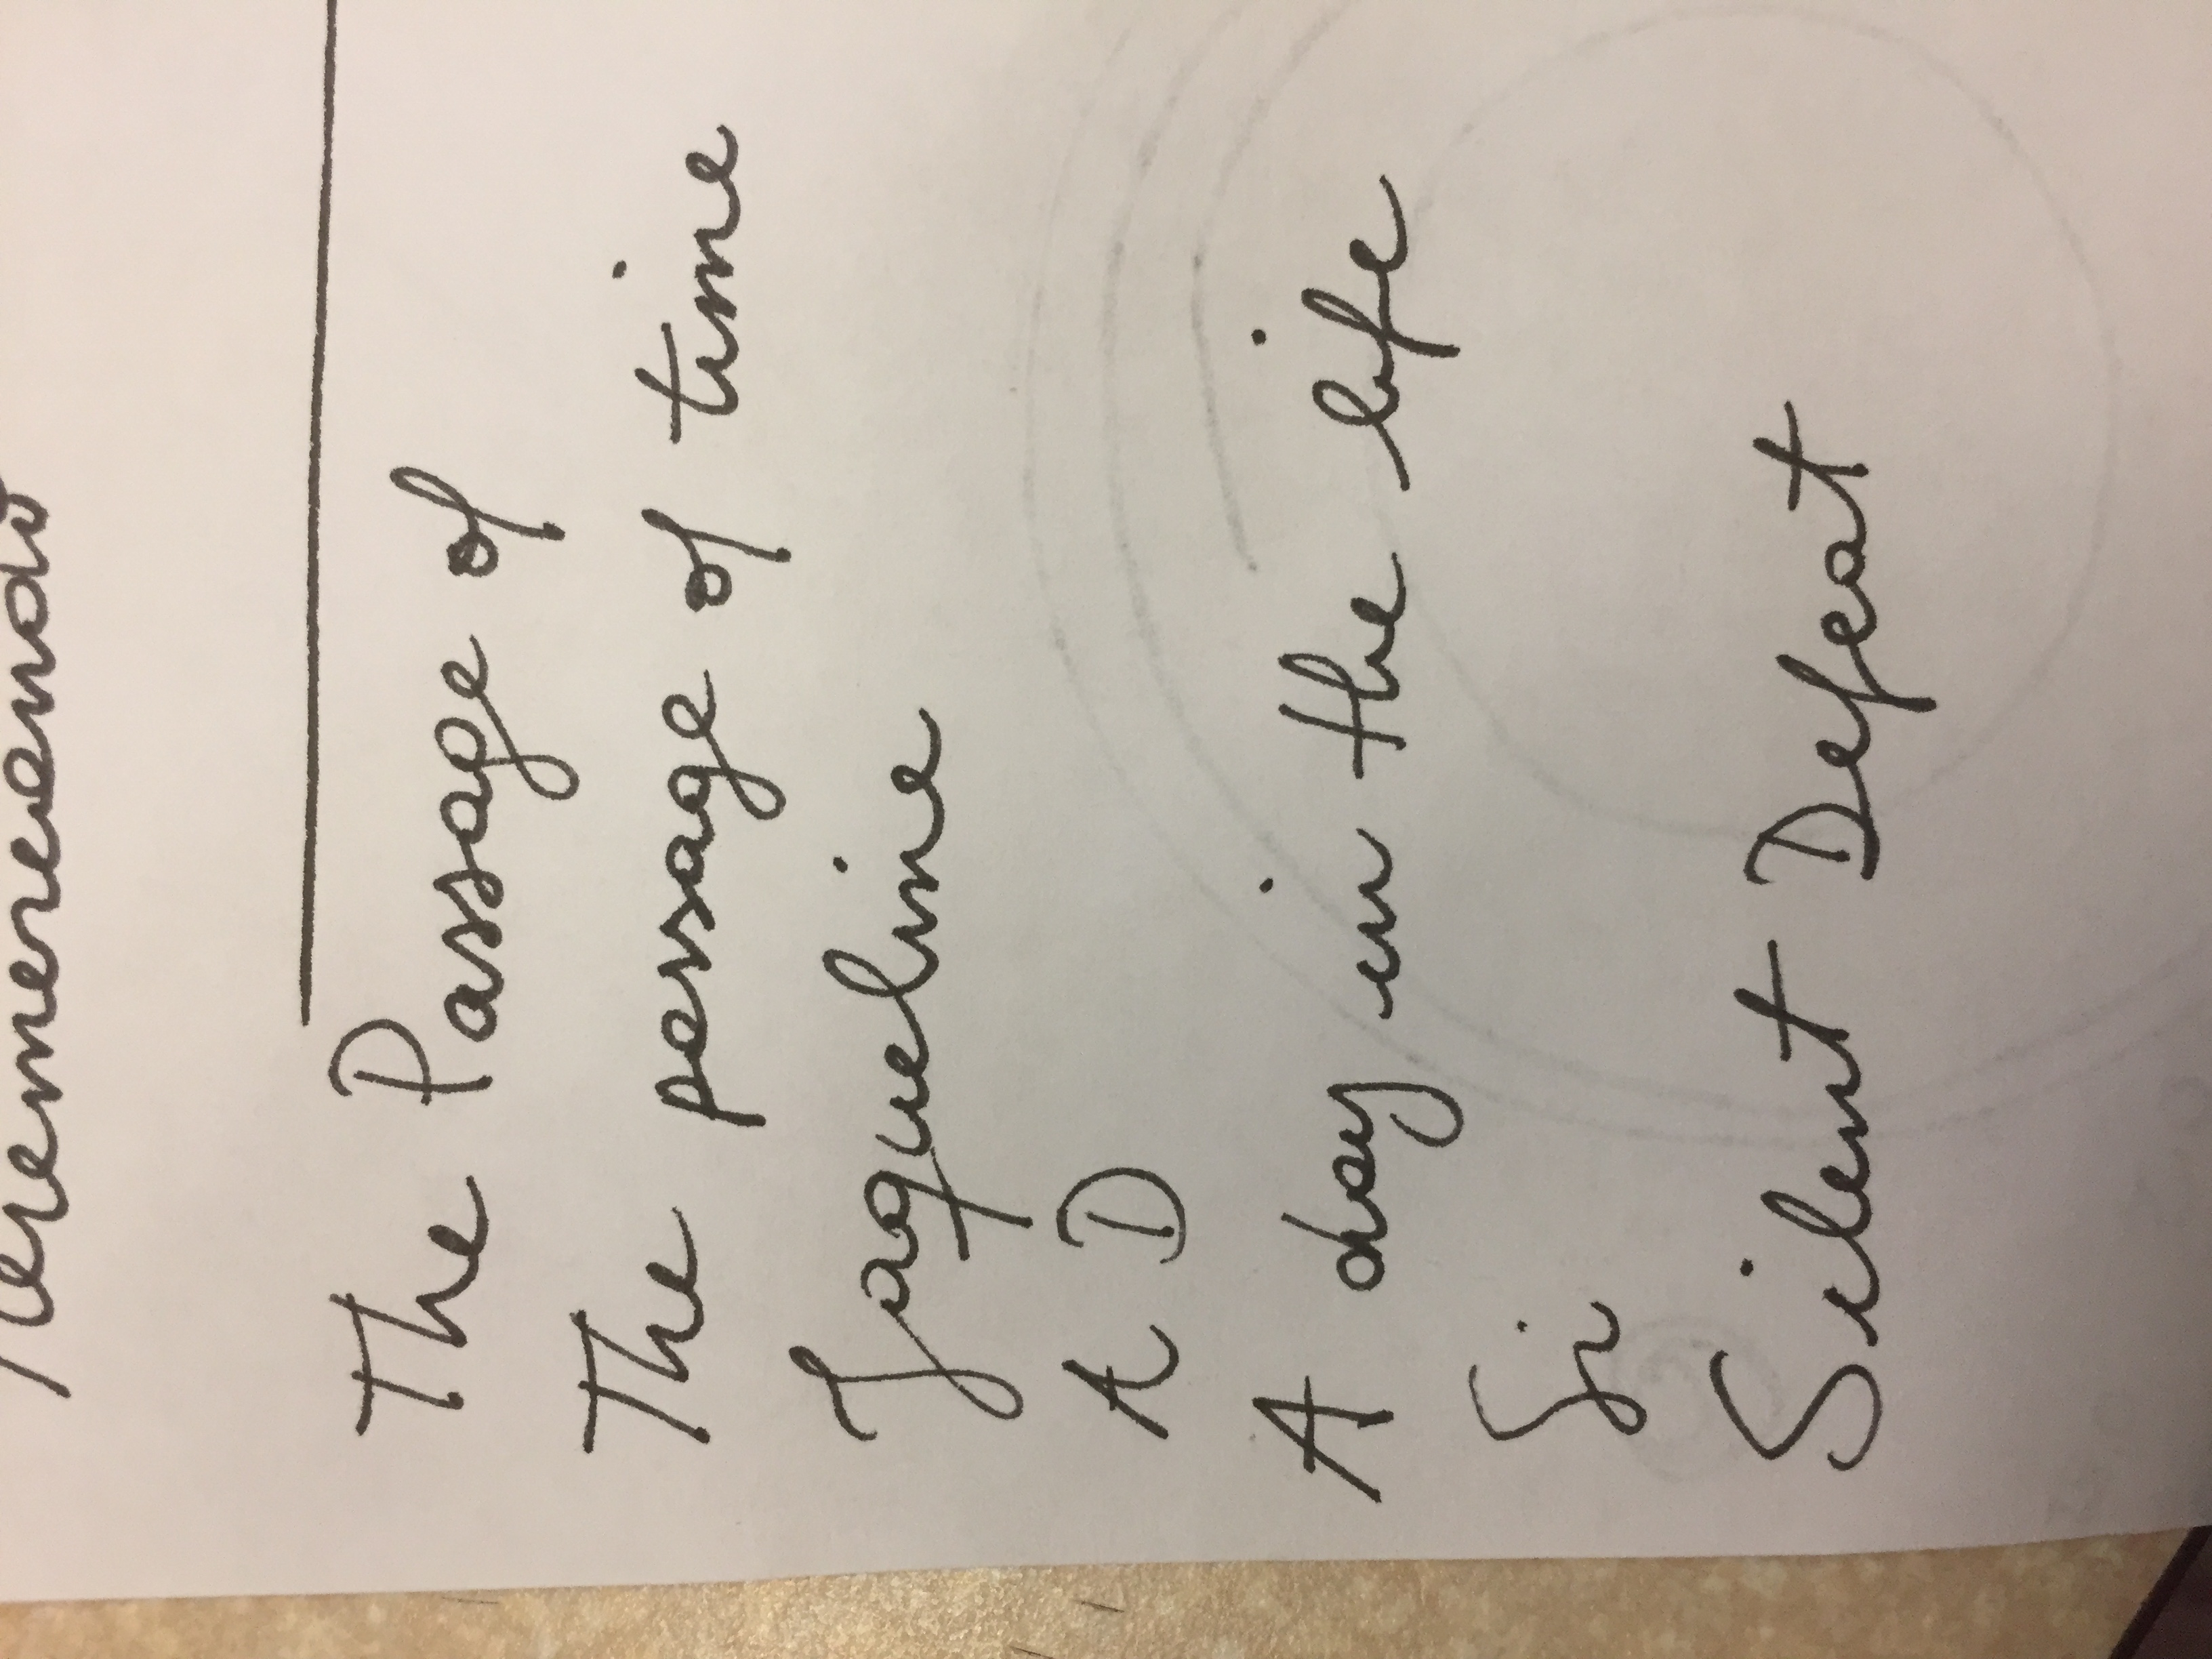 The Passage of
The passage of time
Jaqueline
A D
A day in the life
Si
Silent Defeat